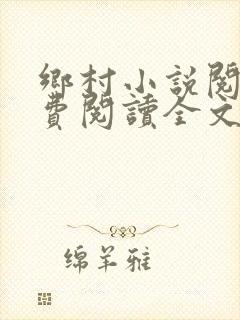 鄉村小說閱
費閱讀全文
绵羊雅